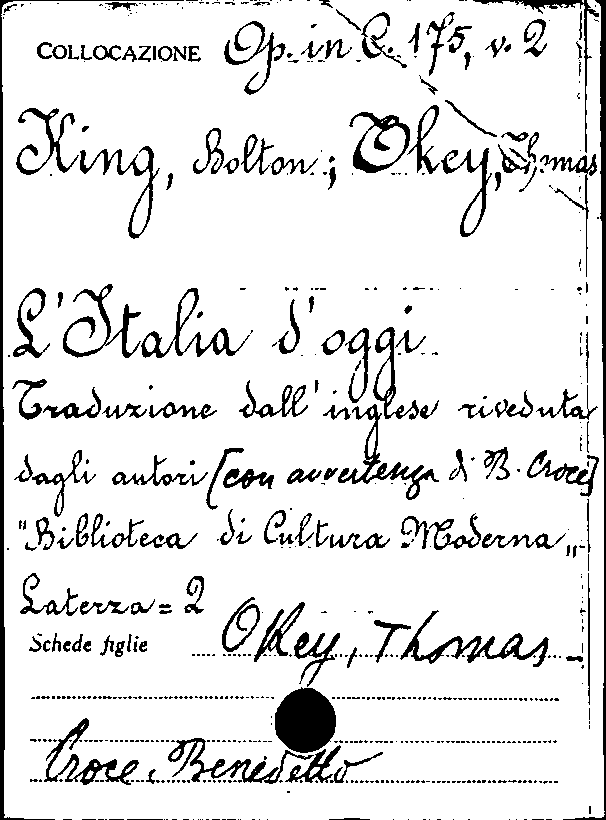 COLLOCAZIONE Op. in C. 175, v. 2
King, Bolton; Okey, Thomas
L'Italia d'oggi
Traduzione dall'inglese riveduta
dagli autori [con avvertenza di B. Croce]
"Biblioteca di Cultura Moderna„
Laterza = 2
Schede figlie Okey, Thomas -
Croce, Benedetto